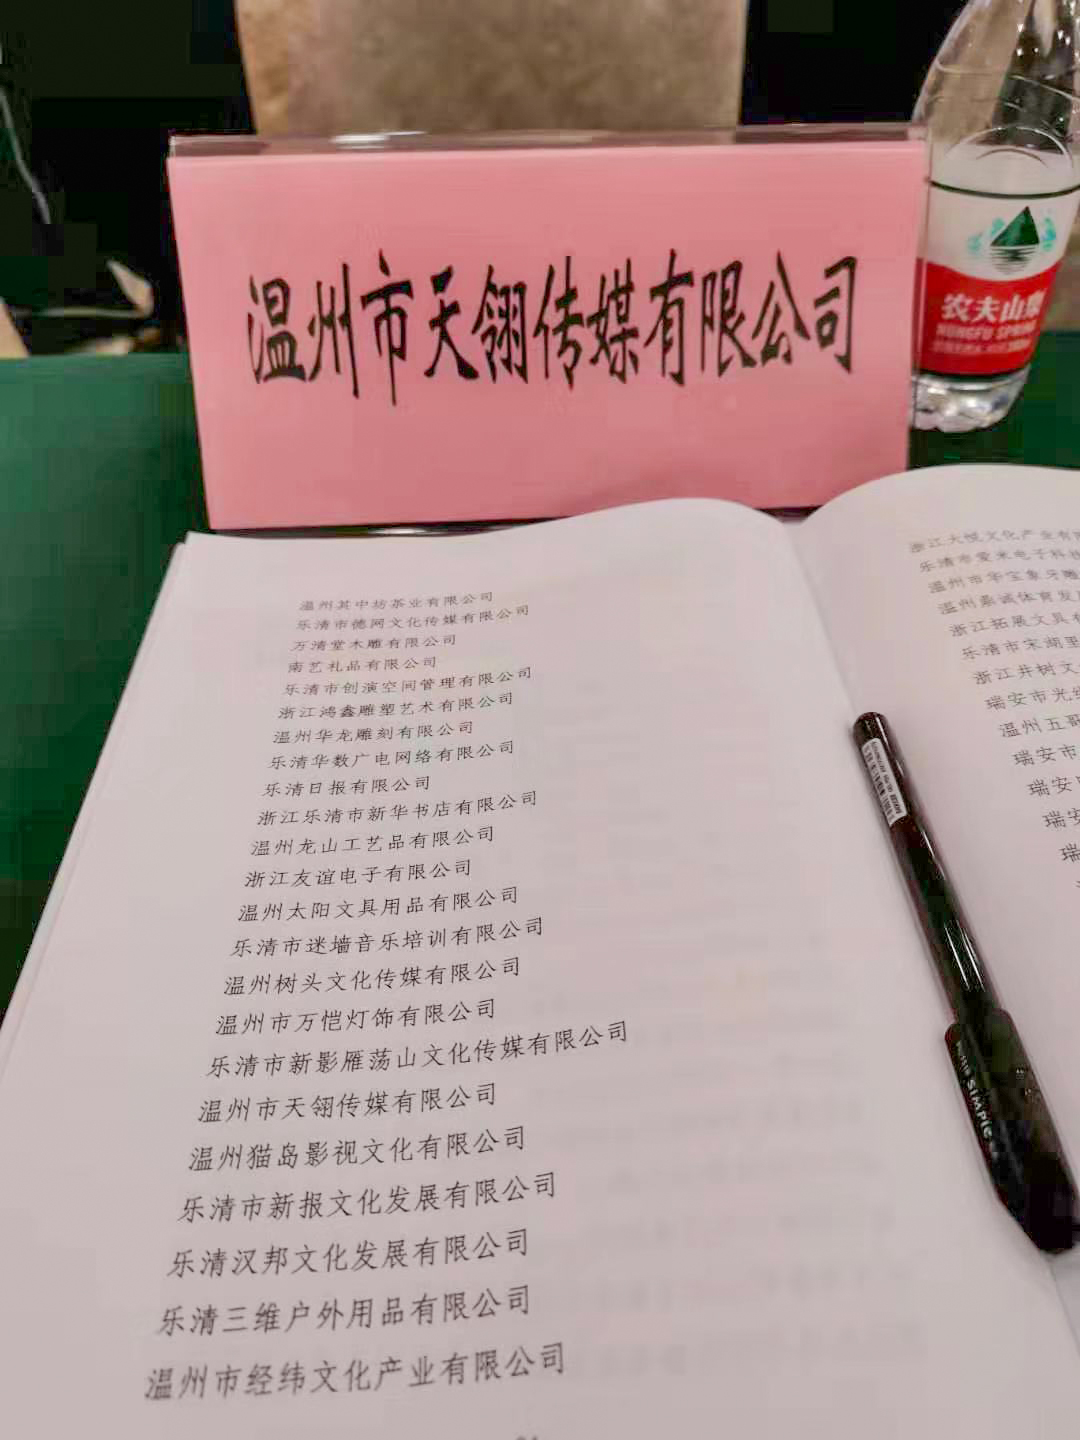 温州市天翎传媒有限公司
农夫山泉
NONGFU SPRING
温州其中坊茶业有限公司
乐清市德网文化传媒有限公司
万清堂木雕有限公司
南艺礼品有限公司
乐清市创演空间管理有限公司
浙江鸿鑫雕塑艺术有限公司
温州华龙雕刻有限公司
乐清华数广电网络有限公司
乐清日报有限公司
浙江乐清市新华书店有限公司
温州龙山工艺品有限公司
浙江友谊电子有限公司
温州太阳文具用品有限公司
乐清市迷墙音乐培训有限公司
温州树头文化传媒有限公司
温州市万恺灯饰有限公司
乐清市新影雁荡山文化传媒有限公司
温州市天翎传媒有限公司
温州猫岛影视文化有限公司
乐清市新报文化发展有限公司
乐清汉邦文化发展有限公司
乐清三维户外用品有限公司
温州市经纬文化产业有限公司
浙江大悦文化产业有限
乐清市爱米电子科技
温州市华宝象牙雕
温州鼎诚体育发展
浙江拓展文具有
乐清市宋湖里
浙江井树文
瑞安市光
温州五哥
瑞安市
瑞安
瑞安
瑞
SIMPLE